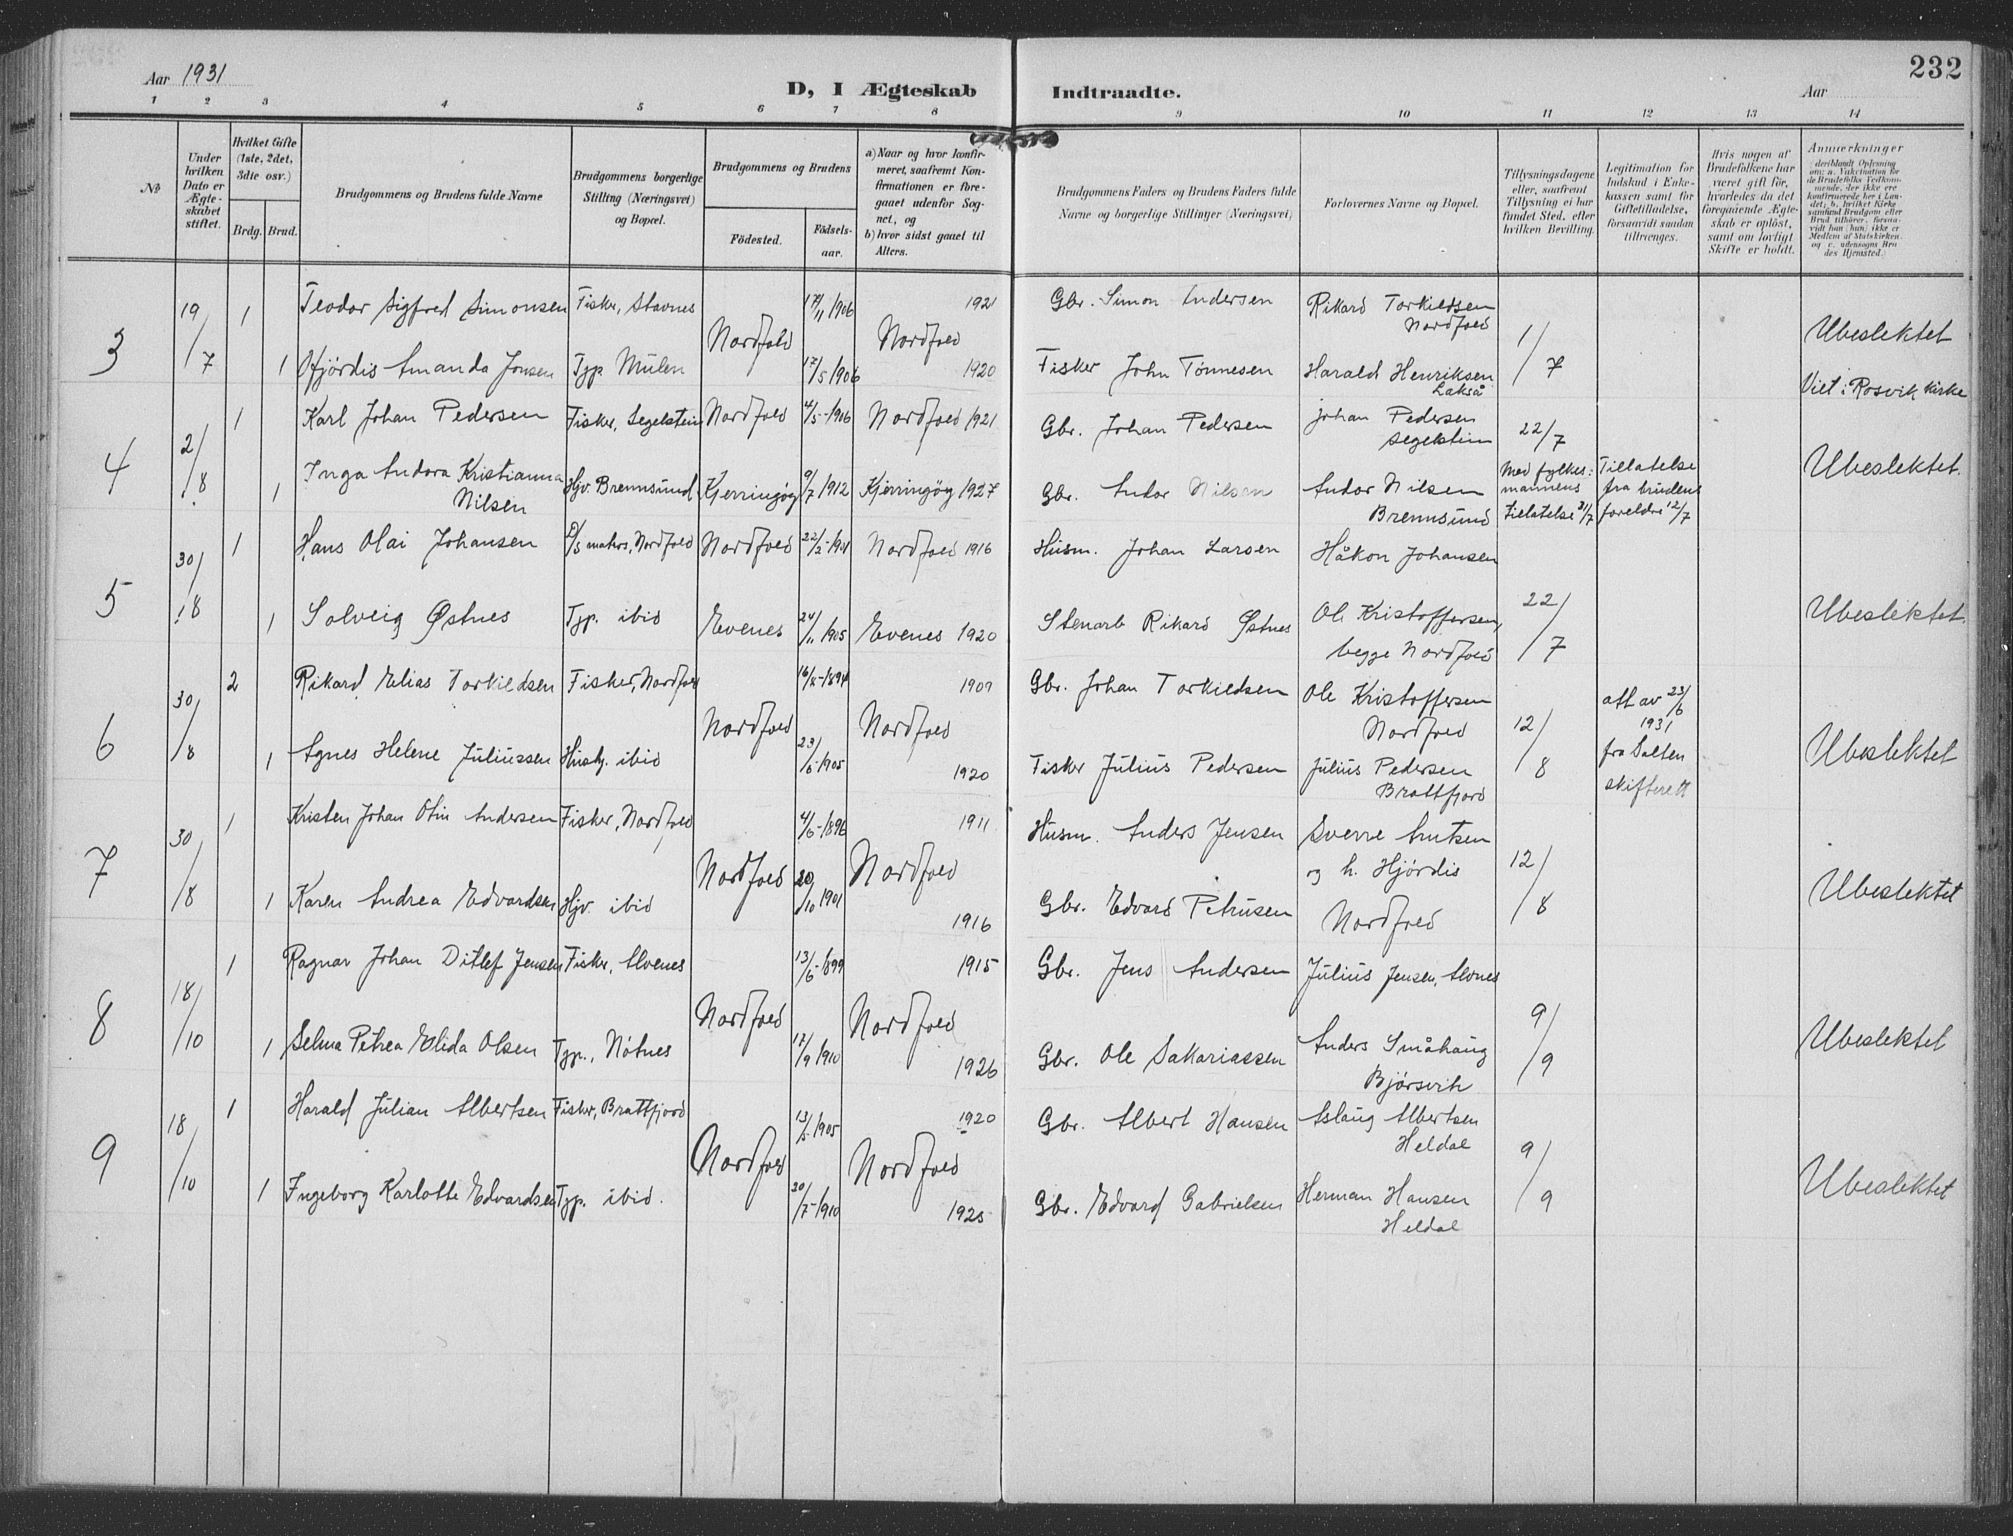 232
Aar 1931
D, I Ægteskab Indtraadte.
Aar
1 2 3 4 5 6 7 8 9 10 11 12 13 14
№
Under hvilken Dato er Ægteskabet stiftet.
Hvilket Gifte (1ste, 2det, 3die osv.)
Brdg. Brud.
Brudgommens og Brudens fulde Navne
Brudgommens borgerlige Stilling (Næringsvei) og Bopæl.
Brudgommens og Brudens
Fødested. Fødselsaar.
a) Naar og hvor konfirmeret, saafremt Konfirmationen er foregaaet udenfor Sognet, og
b) hvor sidst gaaet til Alters.
Brudgommens Faders og Brudens Faders fulde Navne og borgerlige Stillinger (Næringsvei)
Forlovernes Navne og Bopæl.
Tillysningsdagene eller, saafremt Tillysning ei har fundet Sted, efter hvilken Bevilling.
Legitimation for Indskud i Enkekassen samt for Giftetilladelse, forsaavidt saadan tiltrænges.
Hvis nogen af Brudefolkene har været gift før, hvorledes da det foregaaende Ægteskab er opløst, samt om lovligt Skifte er holdt.
Anmerkninger
3 19/7 1 Teodor Sigfred Simonsen Fisker, Stavnes Nordfold 17/11 1906 1921 Nordfold Gbr. Simon Andersen Rikard Torkildsen Nordfold 1/7 Ubeslektet
1 Hjørdis Amanda Jonsen Tjp Mulen 17/5 1906 1920 Fisker John Tønnesen Harald Henriksen Lakså Viet i Rosvik kirke
4 2/8 1 Karl Johan Pedersen Fisker, Segelstein Nordfold 4/5-1906 Nordfold 1921 Gbr. Johan Pedersen Johan Pedersen Segelstein 22/7 Ubeslektet.
1 Inga Andora Kristianna Nilsen Hjv. Brennsund Kjerringøy 9/7 1912 Kjerringøy 1927 Gbr. Andor Nilsen Andor Nilsen Brennsund Med fylkesmannens tillatelse 21/7 Tillatelse fra brudens foreldre 12/7
5 30/8 1 Hans Olai Johansen Nordfold Nordfold 22/2-1901 Nordfold 1916 Husm. Johan Larsen Håkon Johansen
1 Solveig Østnes Tjp. ibid Evenes 24/11 1905 Evenes 1920 Stenarb Rikard Østnes Ole Kristoffersen, begge Nordfold 22/7 Ubeslektet.
6 30/8 2 Rikard Elias Torkildsen Fisker, Nordfold Nordfold 16/8-1894 1909 Nordfold Gbr. Johan Torkildsen Ole Kristoffersen Nordfold 12/8 att av 23/6 1931 fra Salten skifterett Ubeslektet
1 Agnes Helene Juliussen Hush. ibid 23/6-1905 1920 Fisker Julius Pedersen Julius Pedersen Brattfjord
7 30/8 1 Kristen Johan Otin Andersen Fisker, Nordfold Nordfold 4/6-1896 1911 Nordfold Husm. Anders Jensen Sverre Knutsen og h. Hjørdis Nordfold 12/8 Ubeslektet
1 Karen Andrea Edvardsen Hjv. ibid 20/10 1901 1916 Gbr. Edvard Petrusen
8 18/10 1 Ragnar Johan Ditlef Jensen Fisker, Alvenes Nordfold 13/6-1899 1915 Nordfold Gbr. Jens Andersen Julius Jensen, Alvnes 9/9 Ubeslektet
1 Selma Petrea Elida Olsen Tjp., Nøtnes 17/9 1910 1926 Gbr. Ole Sakariassen Anders Småhaug Bjørsvik
9 18/10 1 Harald Julian Albertsen Fisker, Brattfjord Nordfold 13/5-1905 1920 Nordfold Gbr. Albert Hansen Aslaug Albertsen Heldal 9/9 Ubeslektet
1 Ingeborg Karlotte Edvardsen Tjp. ibid. 30/7-1910 1925 Gbr. Edvard Gabrielsen Herman Hansen Heldal